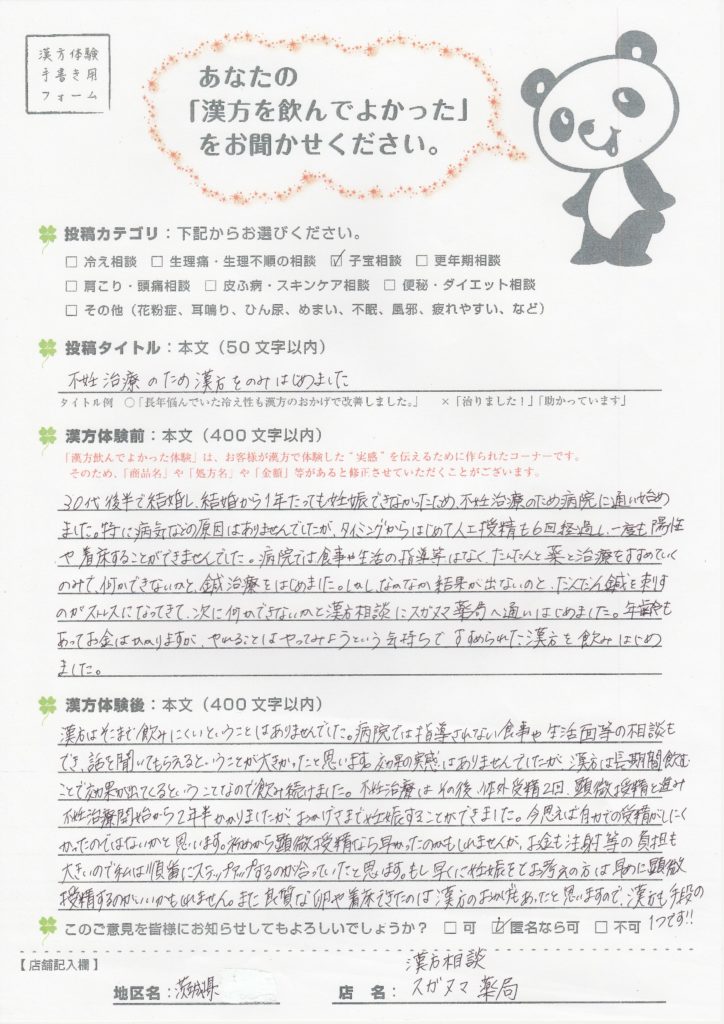 漢方体験
手書き用
フォーム
あなたの
「漢方を飲んでよかった」
をお聞かせください。
投稿カテゴリ：下記からお選びください。
□ 冷え相談 □ 生理痛・生理不順の相談 ☑ 子宝相談 □ 更年期相談
□ 肩こり・頭痛相談 □ 皮ふ病・スキンケア相談 □ 便秘・ダイエット相談
□ その他（花粉症、耳鳴り、ひん尿、めまい、不眠、風邪、疲れやすい、など）
投稿タイトル：本文（50文字以内）
不妊治療のため漢方をのみはじめました
タイトル例 ○「長年悩んでいた冷え性も漢方のおかげで改善しました。」 ×「治りました！」「助かっています」
漢方体験前：本文（400文字以内）
「漢方飲んでよかった体験」は、お客様が漢方で体験した“実感”を伝えるために作られたコーナーです。
そのため、「商品名」や「処方名」や「金額」等があると修正させていただくことがございます。
30代後半で結婚し、結婚から1年たっても妊娠できなかったため、不妊治療のため病院に通い始め
ました。特に病気などの原因はありませんでしたが、タイミングからはじめて人工授精も6回経過し、一度も陽性
や着床することができませんでした。病院では食事や生活の指導等はなく、たんたんと薬と治療をすすめていく
のみで、何かできないかと、鍼治療をはじめました。しかし、なかなか結果が出ないのと、だんだん鍼を刺す
のがストレスになってきて、次に何かできないかと漢方相談にスガヌマ薬局へ通いはじめました。年齢も
あってお金はかかりますが、やれることはやってみようという気持ちですすめられた漢方を飲みはじめ
ました。
漢方体験後：本文（400文字以内）
漢方はそこまで飲みにくいということはありませんでした。病院では指導されない食事や生活面等の相談も
でき、話を聞いてもらえるということが大きかったと思います。効果の実感はありませんでしたが、漢方は長期間飲む
ことで効果が出てくるということなので飲み続けました。不妊治療はその後、体外受精2回、顕微授精と進み
不妊治療開始から2年半かかりましたが、おかげさまで妊娠することができました。今思えば自力での受精がしにく
かったのではないかと思います。初めから顕微授精なら早かったのかもしれませんが、お金も注射等の負担も
大きいので私は順番にステップアップするのが合っていたと思います。もし早くに妊娠をとお考えの方は早めに顕微
授精するのがいいかもしれません。また良質な卵や着床できたのは漢方のおかげもあったと思いますので、漢方も手段の
1つです!!
このご意見を皆様にお知らせしてもよろしいでしょうか？ □ 可 ☑ 匿名なら可 □ 不可
【店舗記入欄】
漢方相談
地区名：茨城県 店 名：スガヌマ薬局